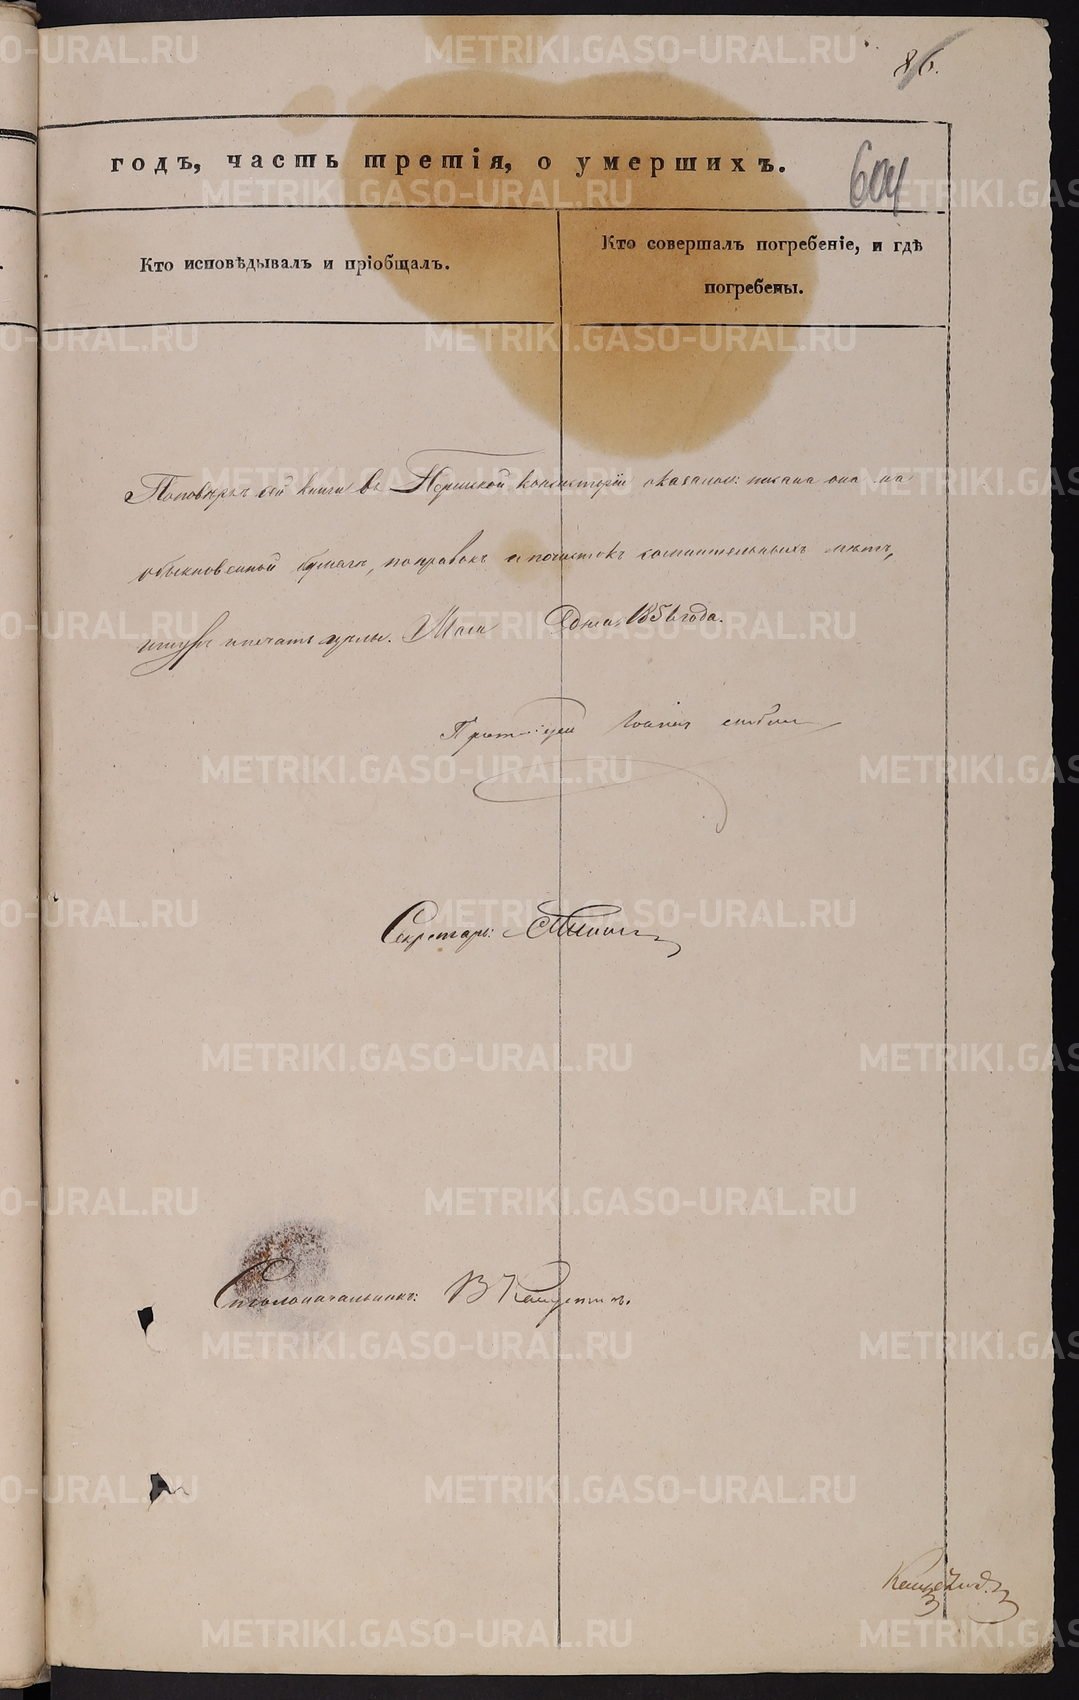 86.
годъ, часть третія, о умершихъ.
604
Кто исповѣдывалъ и пріобщалъ.
Кто совершалъ погребеніе, и гдѣ
погребены.
По повѣркѣ сей книги въ Пермской консисторіи оказалось: писана она на
обыкновенной бумагѣ, поправокъ и почистокъ сомнительныхъ нѣтъ,
шнуръ и печать цѣлы. Мая дня 185 года.
Протоіерей Іоаннъ
Секретарь:
Столоначальникъ: В
METRIKI.GASO-URAL.RU